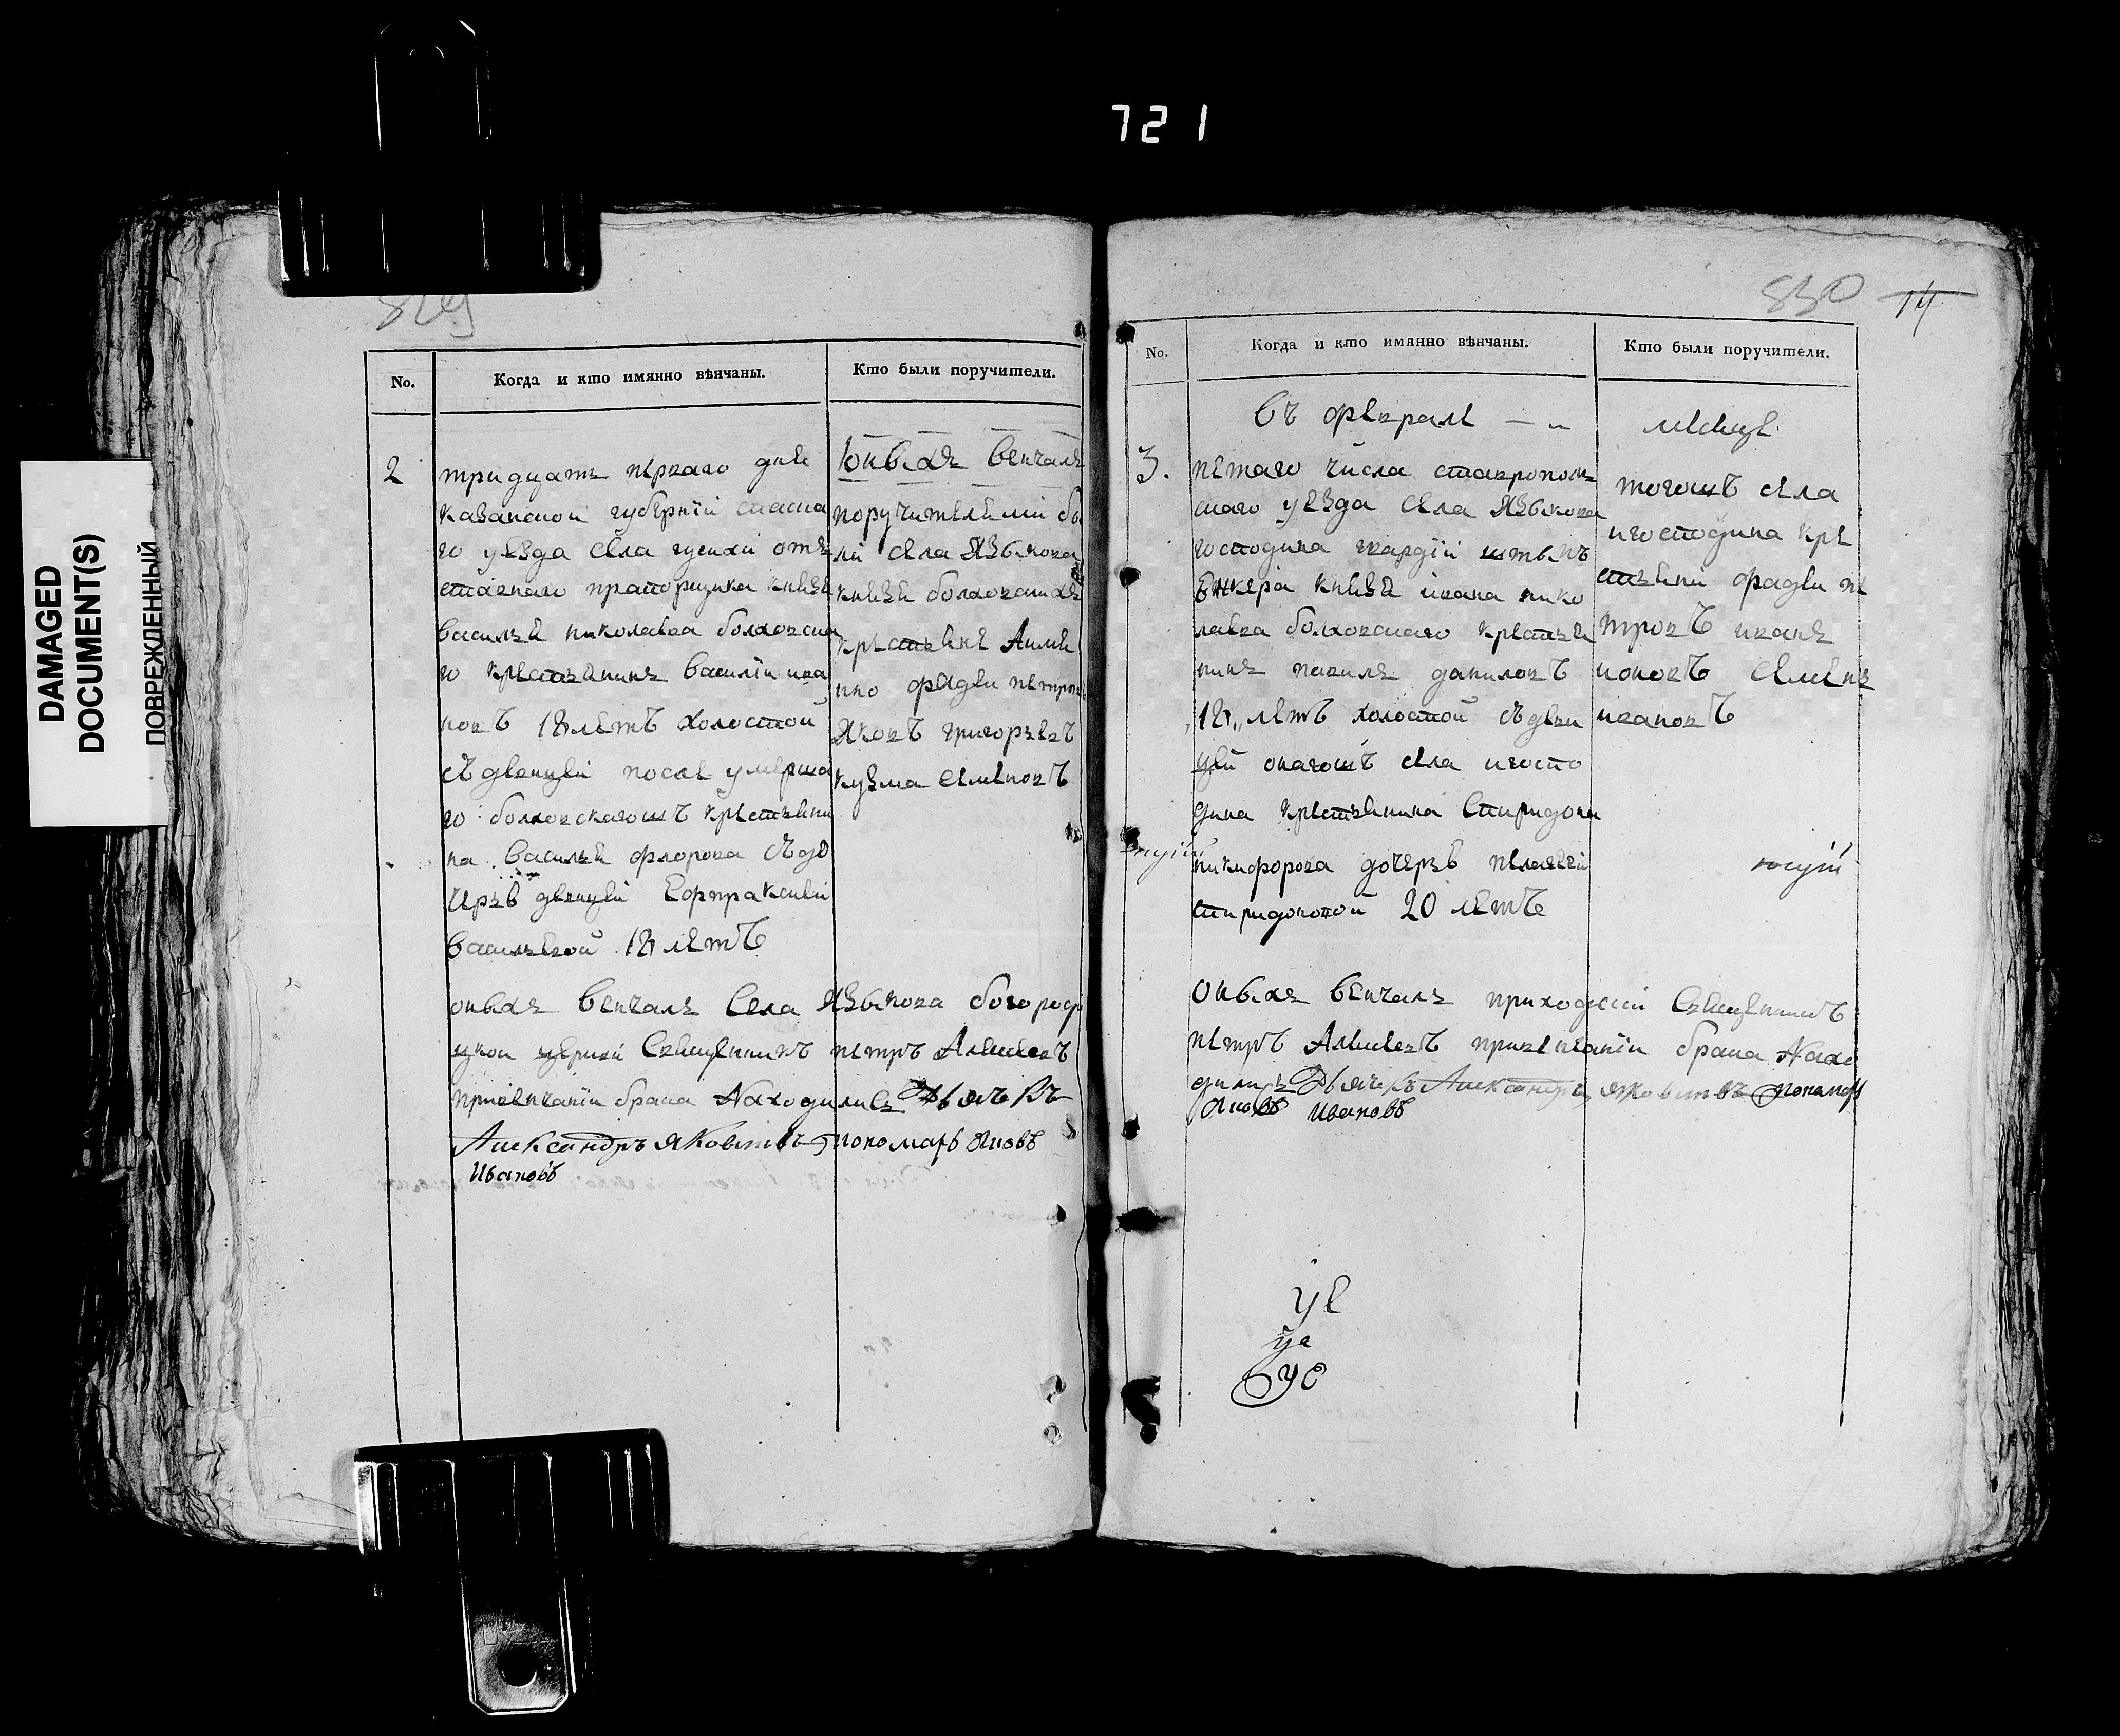 721
DAMAGED
DOCUMENT(S)
ПОВРЕЖДЕННЫЙ
829
No.
Когда и кто имянно вѣнчаны.
Кто были поручители.
2
тридцать перваго дня
казанской губернїи спаска
го уезда села гусихи отъ
ставнаго прапорщика князя
василья николаева болховска
го крестьянинъ василїи ива
новъ 18 летъ холостой
съ девицей после умерша
го болховскагошъ крестьяни
на василья флорова съ до
черью девицей Еѳпраксией
васильевой 18 летъ
оныхъ венчалъ
поручителями бы
ли села Языкова
князя болховскихъ
крестьяне
фадеи петров
Яковъ григорьевъ
кузма семеновъ
оныхъ венчалъ села Языкова богород
цкои церкви священникъ петръ Алексеевъ
привенчании брака находились Дьячекъ
Александръ яковлевъ пономарь Яковъ
Ивановъ
830 14
No.
Когда и кто имянно вѣнчаны.
Кто были поручители.
въ феврале месяце
3.
пятаго числа ставрополь
скаго уезда села Языкова
господина гвардїи штыкъ
юнкера князя ивана нико
лаева болховскаго крестья
нинъ даниловъ
18 летъ холостой съ деви
цей онагошъ села игоспо
дина крестьянина Спиридона
никифорова дочерью пелагеей
спиридоновой 20 летъ
тогошъ села
игосподина кре
стьяни фадеи пе
тровъ иванъ
семенъ
ивановъ
оныхъ венчалъ приходский священникъ
петръ Алексеевъ привенчанїи брака Нахо
дились Дьячекъ Александръ яковлевъ пономарь
Яковъ Ивановъ